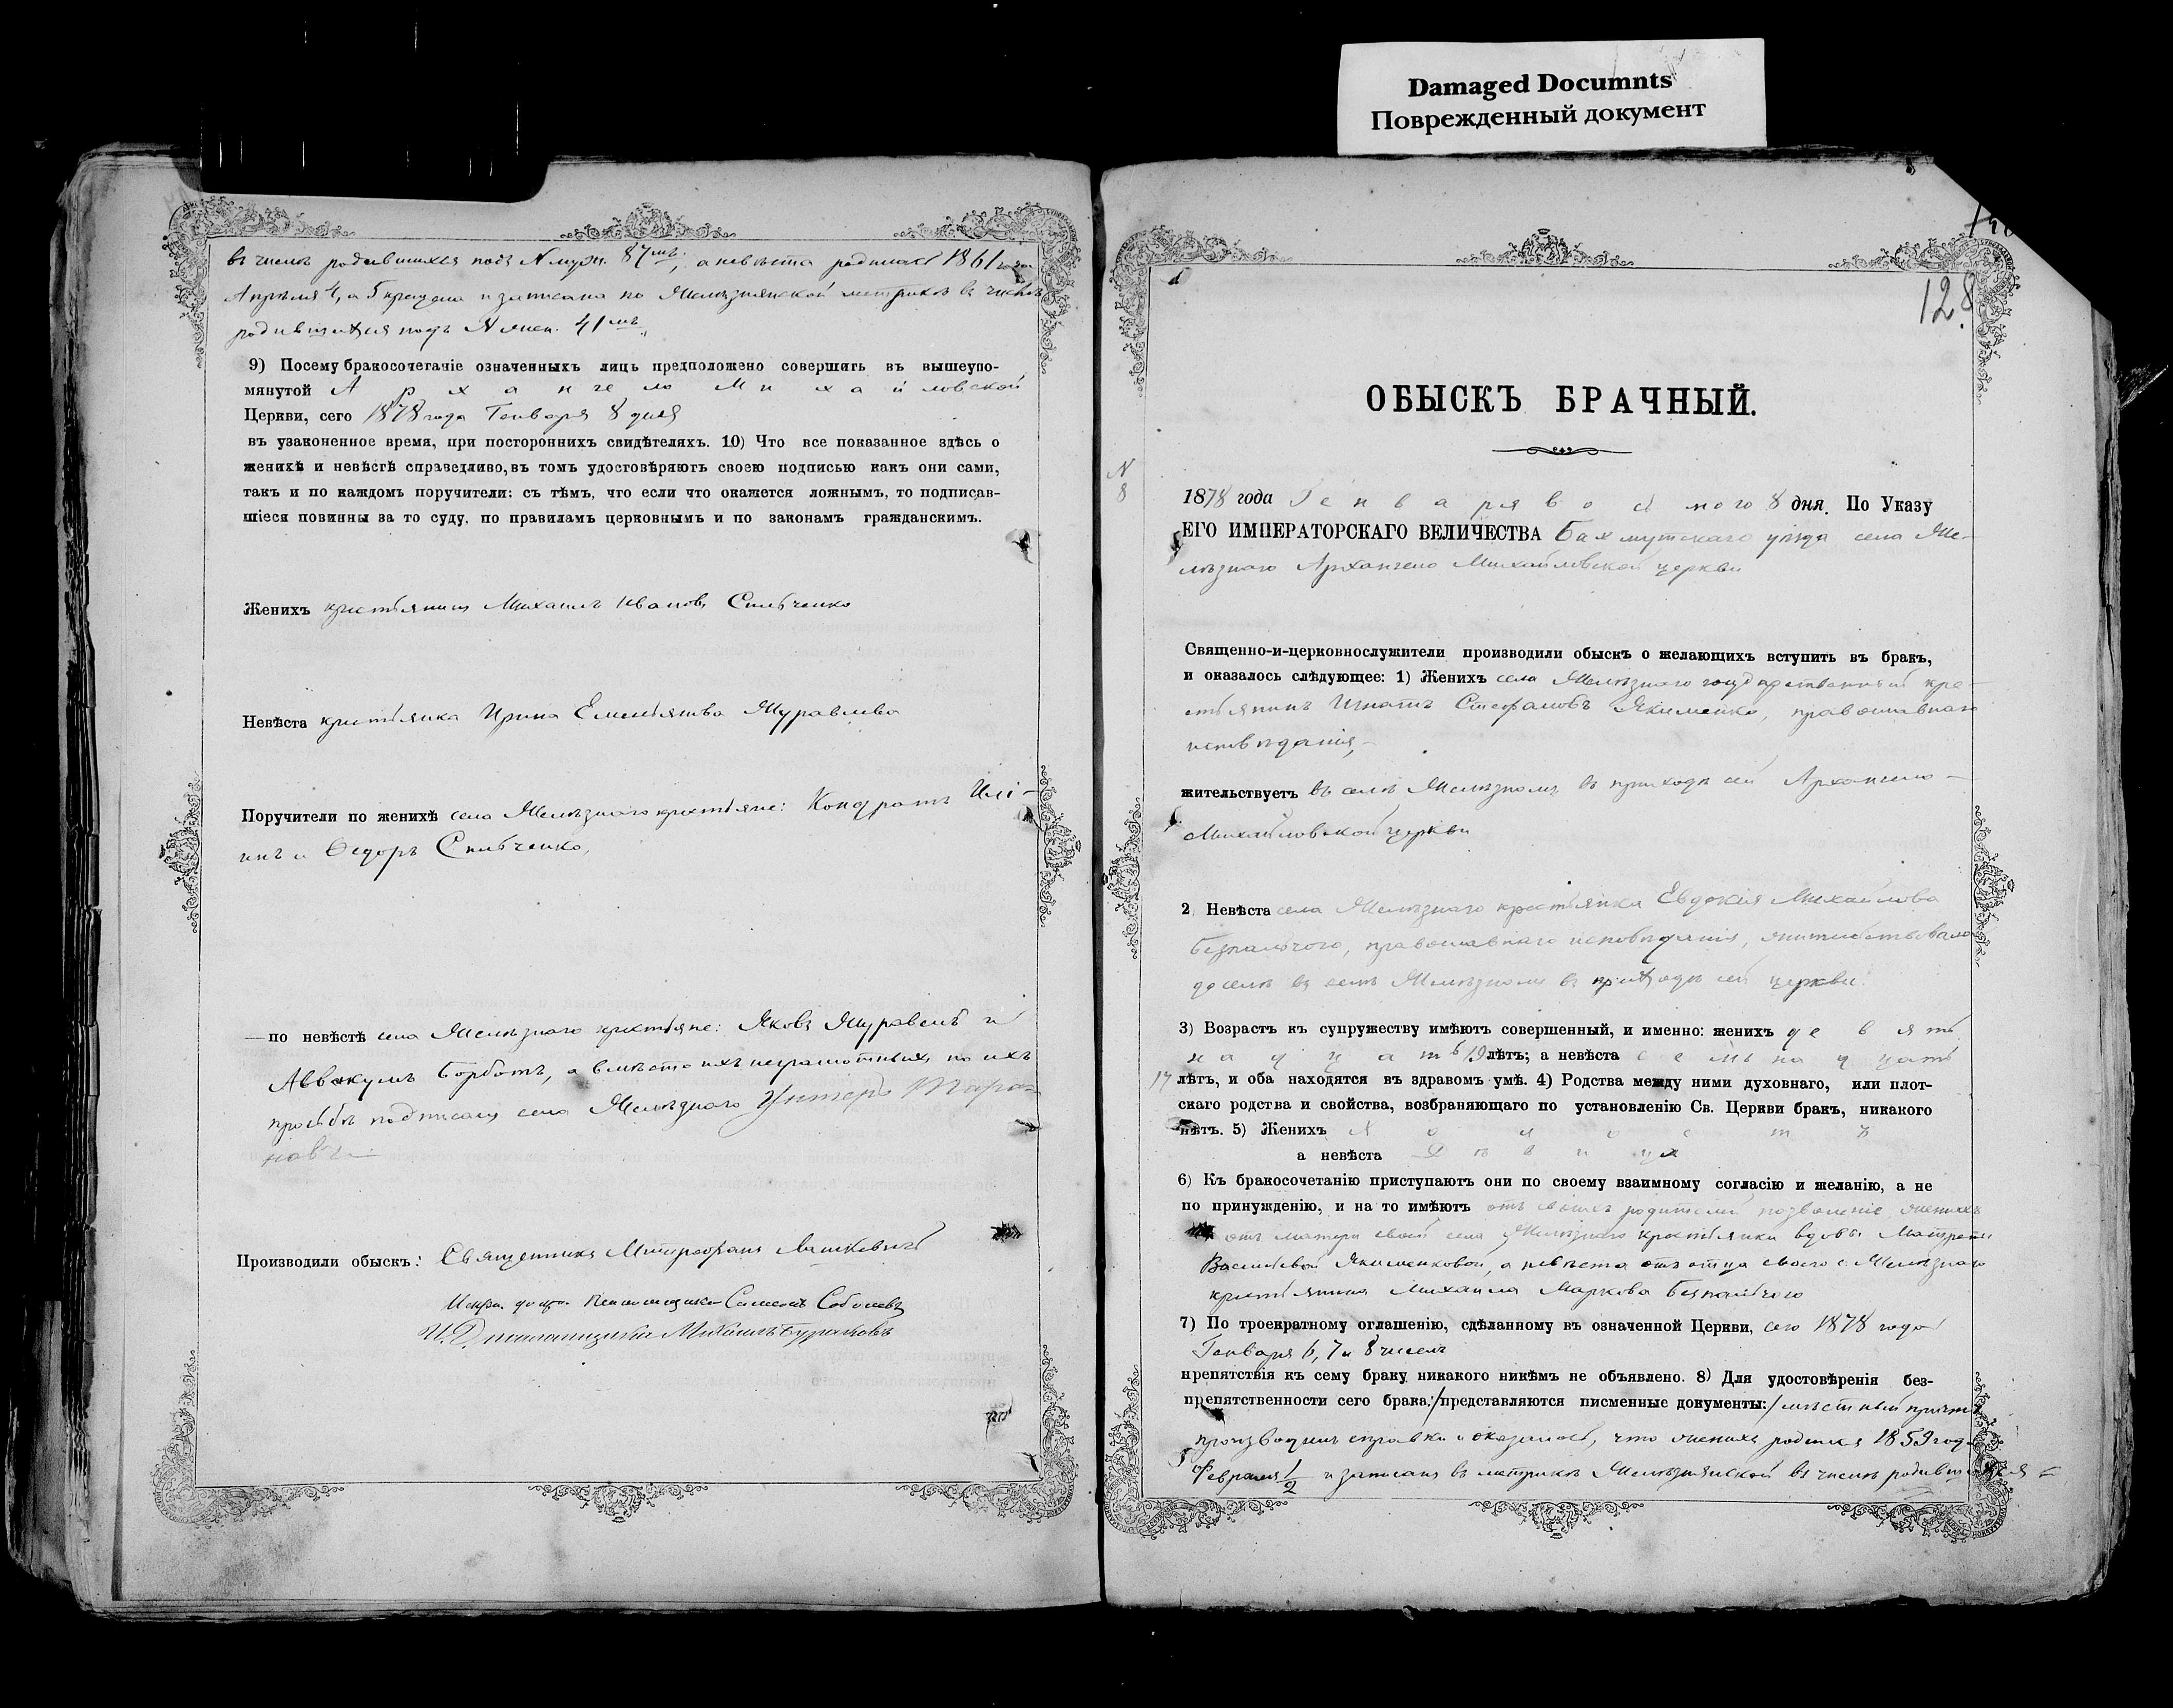 Damaged Documnts
Поврежденный документ
въ числѣ родившихся подъ N муж. 87мъ, а невѣста родилась 1861 года
Апрѣля 4, а 5 крещена и записана по Желѣзнянской метрикѣ въ числѣ
родившихся подъ N жен. 41мъ.
9) Посему бракосочетаніе означенныхъ лицъ предположено совершить въ вышеупо-
мянутой Архангело Михайловской
Церкви, сего 1878 года Генваря 8 дня
въ узаконенное время, при постороннихъ свидѣтеляхъ. 10) Что все показанное здѣсь о
женихѣ и невѣстѣ справедливо, въ томъ удостовѣряютъ своею подписью какъ они сами,
такъ и по каждомъ поручители: съ тѣмъ, что если что окажется ложнымъ, то подписав-
шіеся повинны за то суду, по правиламъ церковнымъ и по законамъ гражданскимъ.
Женихъ крестьянин Михаилъ Ивановъ Сильченко
Невѣста крестьянка Ирина Емельянова Журавлева
Поручители по женихѣ села Желѣзнаго крестьяне: Кондратъ Иль-
инъ и Ѳедоръ Сильченко,
— по невѣстѣ села Желѣзнаго крестьяне: Яковъ Журавель и
Аввакумъ Борботъ, а вмѣсто ихъ неграмотныхъ по ихъ
просьбѣ подписалъ села Желѣзнаго Унтеръ
Производили обыскъ: Священникъ Митрофанъ
Псаломщика Симеонъ Соболевъ
И. Д. псаломщика Михаилъ Бураковъ
128
ОБЫСКЪ БРАЧНЫЙ.
N
8
1878 года Генваря восьмого 8 дня. По Указу
ЕГО ИМПЕРАТОРСКАГО ВЕЛИЧЕСТВА Бахмутскаго уѣзда села Же-
лѣзнаго Архангело Михайловской церкви
Священно-и-церковнослужители производили обыскъ о желающихъ вступить въ бракъ,
и оказалось слѣдующее: 1) Женихъ села Желѣзнаго государственный кре-
стьянинъ Игнатъ Стефановъ Якименко, православнаго
исповѣданія,
жительствуетъ въ селѣ Желѣзномъ въ приходѣ сей Архангело-
Михайловской церкви
2. Невѣста села Желѣзнаго крестьянка Евдокія Михайлова
Безпальчого, православнаго исповѣданія, жительствовала
доселѣ въ селѣ Желѣзномъ въ приходѣ сей церкви.
3) Возрастъ къ супружеству имѣютъ совершенный, и именно: женихъ девять
надцать 19 лѣтъ; а невѣста семьнадцать
17 лѣтъ, и оба находятся въ здравомъ умѣ. 4) Родства между ними духовнаго, или плот-
скаго родства и свойства, возбраняющаго по установленію Св. Церкви бракъ, никакого
нѣтъ. 5) Женихъ холостъ
а невѣста Дѣвица
6) Къ бракосочетанію приступаютъ они по своему взаимному согласію и желанію, а не
по принужденію, и на то имѣютъ отъ своихъ родителей позволеніе, женихъ
отъ матери своей села Желѣзнаго крестьянки вдовы Матрены
Васильевой Якименковой, а невѣста отъ отца своего с. Желѣзнаго
крестьянина Михаила Маркова Безпальчого
7) По троекратному оглашенію, сдѣланному въ означенной Церкви, сего 1878 года
Генваря 6, 7 и 8 чиселъ
препятствія къ сему браку никакого никѣмъ не объявлено. 8) Для удостовѣренія без-
препятственности сего брака:/представляются писменные документы:/мѣстный причтъ
производилъ справки и оказалось, что женихъ родился 1859 года
Февраля 1/2 и записанъ въ метрикѣ Желѣзнянской въ числѣ родившихся